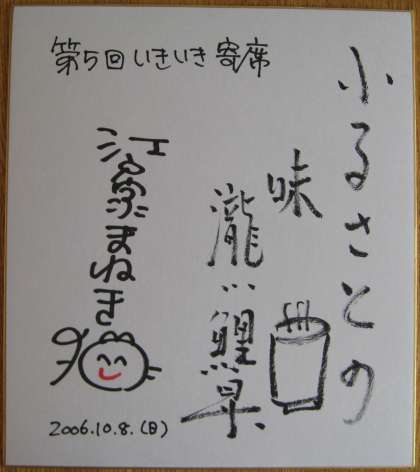 第5回いきいき寄席
ふるさとの
味
瀧川鯉昇
江戸家まねき
2006.10.8.(日)